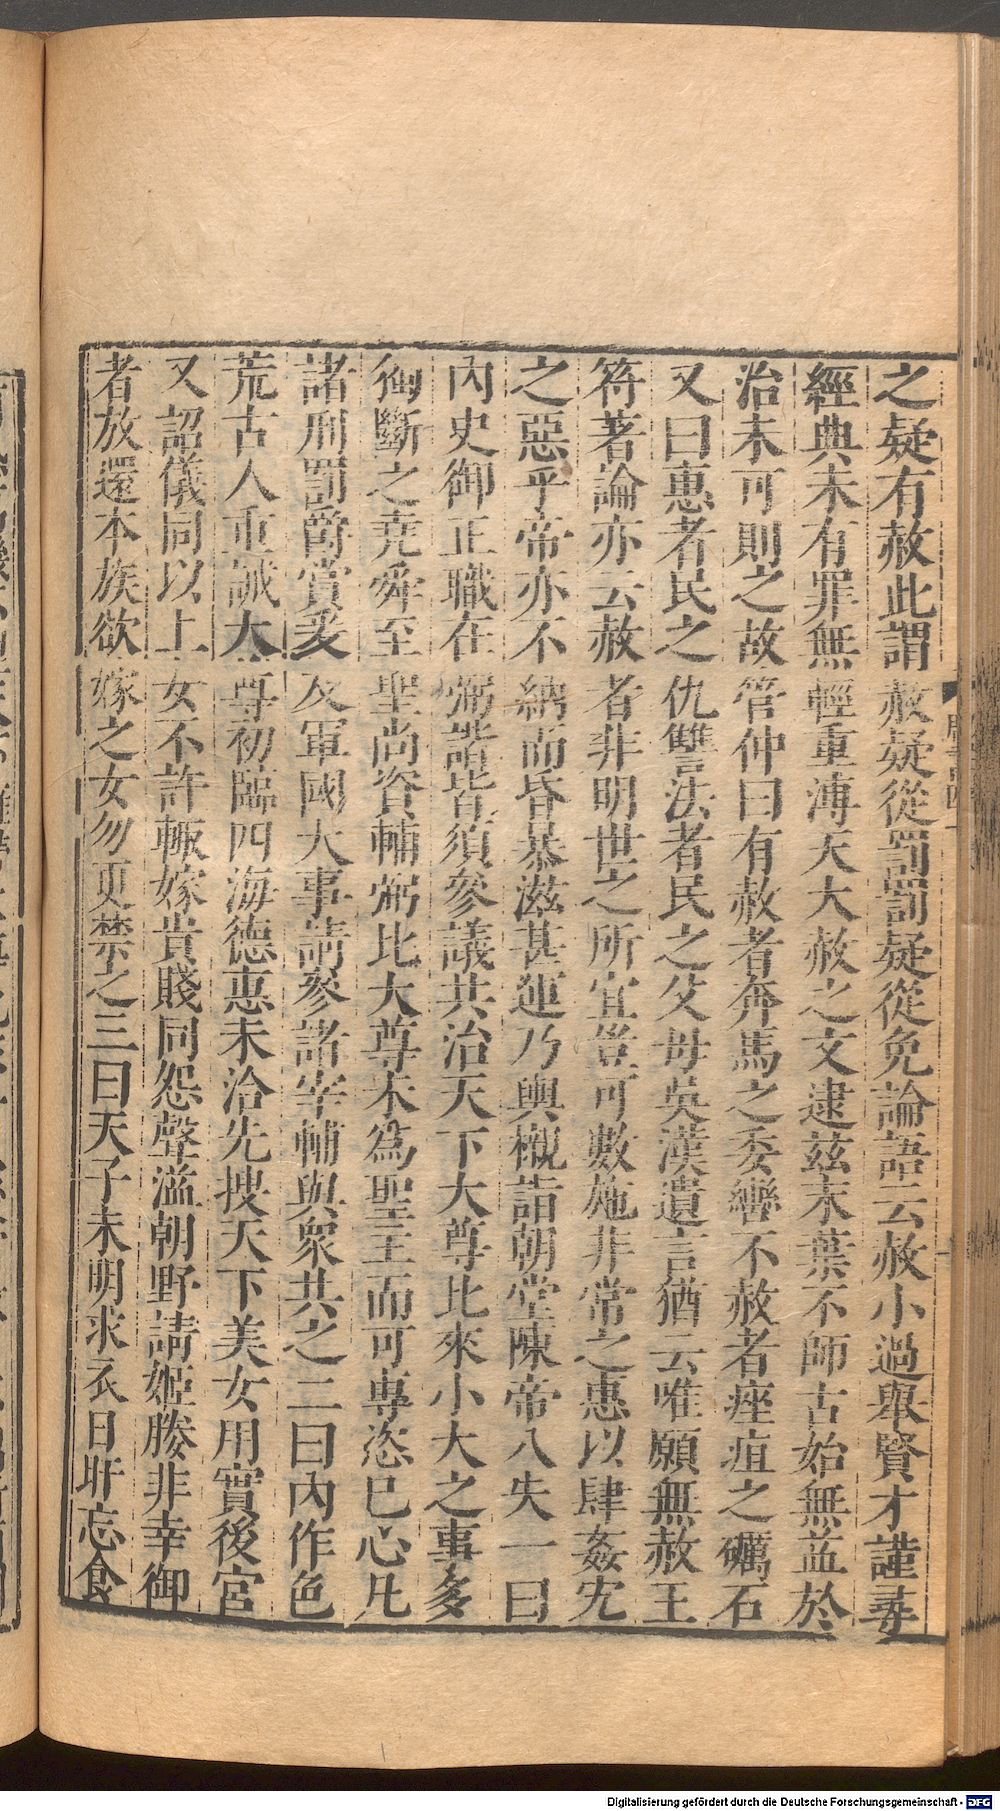 之疑有赦此謂赦疑從罰罰疑從免論語云赦小過舉賢才謹尋
經典未有罪無輕重溥天大赦之文逮茲末葉不師古始無益於
治未可則之故管仲曰有赦者奔馬之委轡不赦者痤疽之礪石
又曰惠者民之仇讐法者民之父母吳漢遺言猶云唯願無赦王
符著論亦云赦者非明世之所宜豈可數施非常之惠以肆姦宄
之惡乎帝亦不納而昏暴滋甚運乃輿櫬詣朝堂陳帝八失一曰
內史御正職在弼諧皆須參議共治天下大尊比來小大之事多
獨斷之堯舜至聖尚資輔弼比大尊未爲聖主而可專恣巳心凡
諸刑罰爵賞爰及軍國大事請參諸宰輔與眾共之二曰內作色
荒古人重誡大尊初臨四海德惠未洽先搜天下美女用實後宮
又詔儀同以上女不許輙嫁貴賤同怨聲溢朝野請姬媵非幸御
者放還本族欲嫁之女勿更禁之三曰天子未明求衣日旰忘食
Digitalisierung gefördert durch die Deutsche Forschungsgemeinschaft - DFG